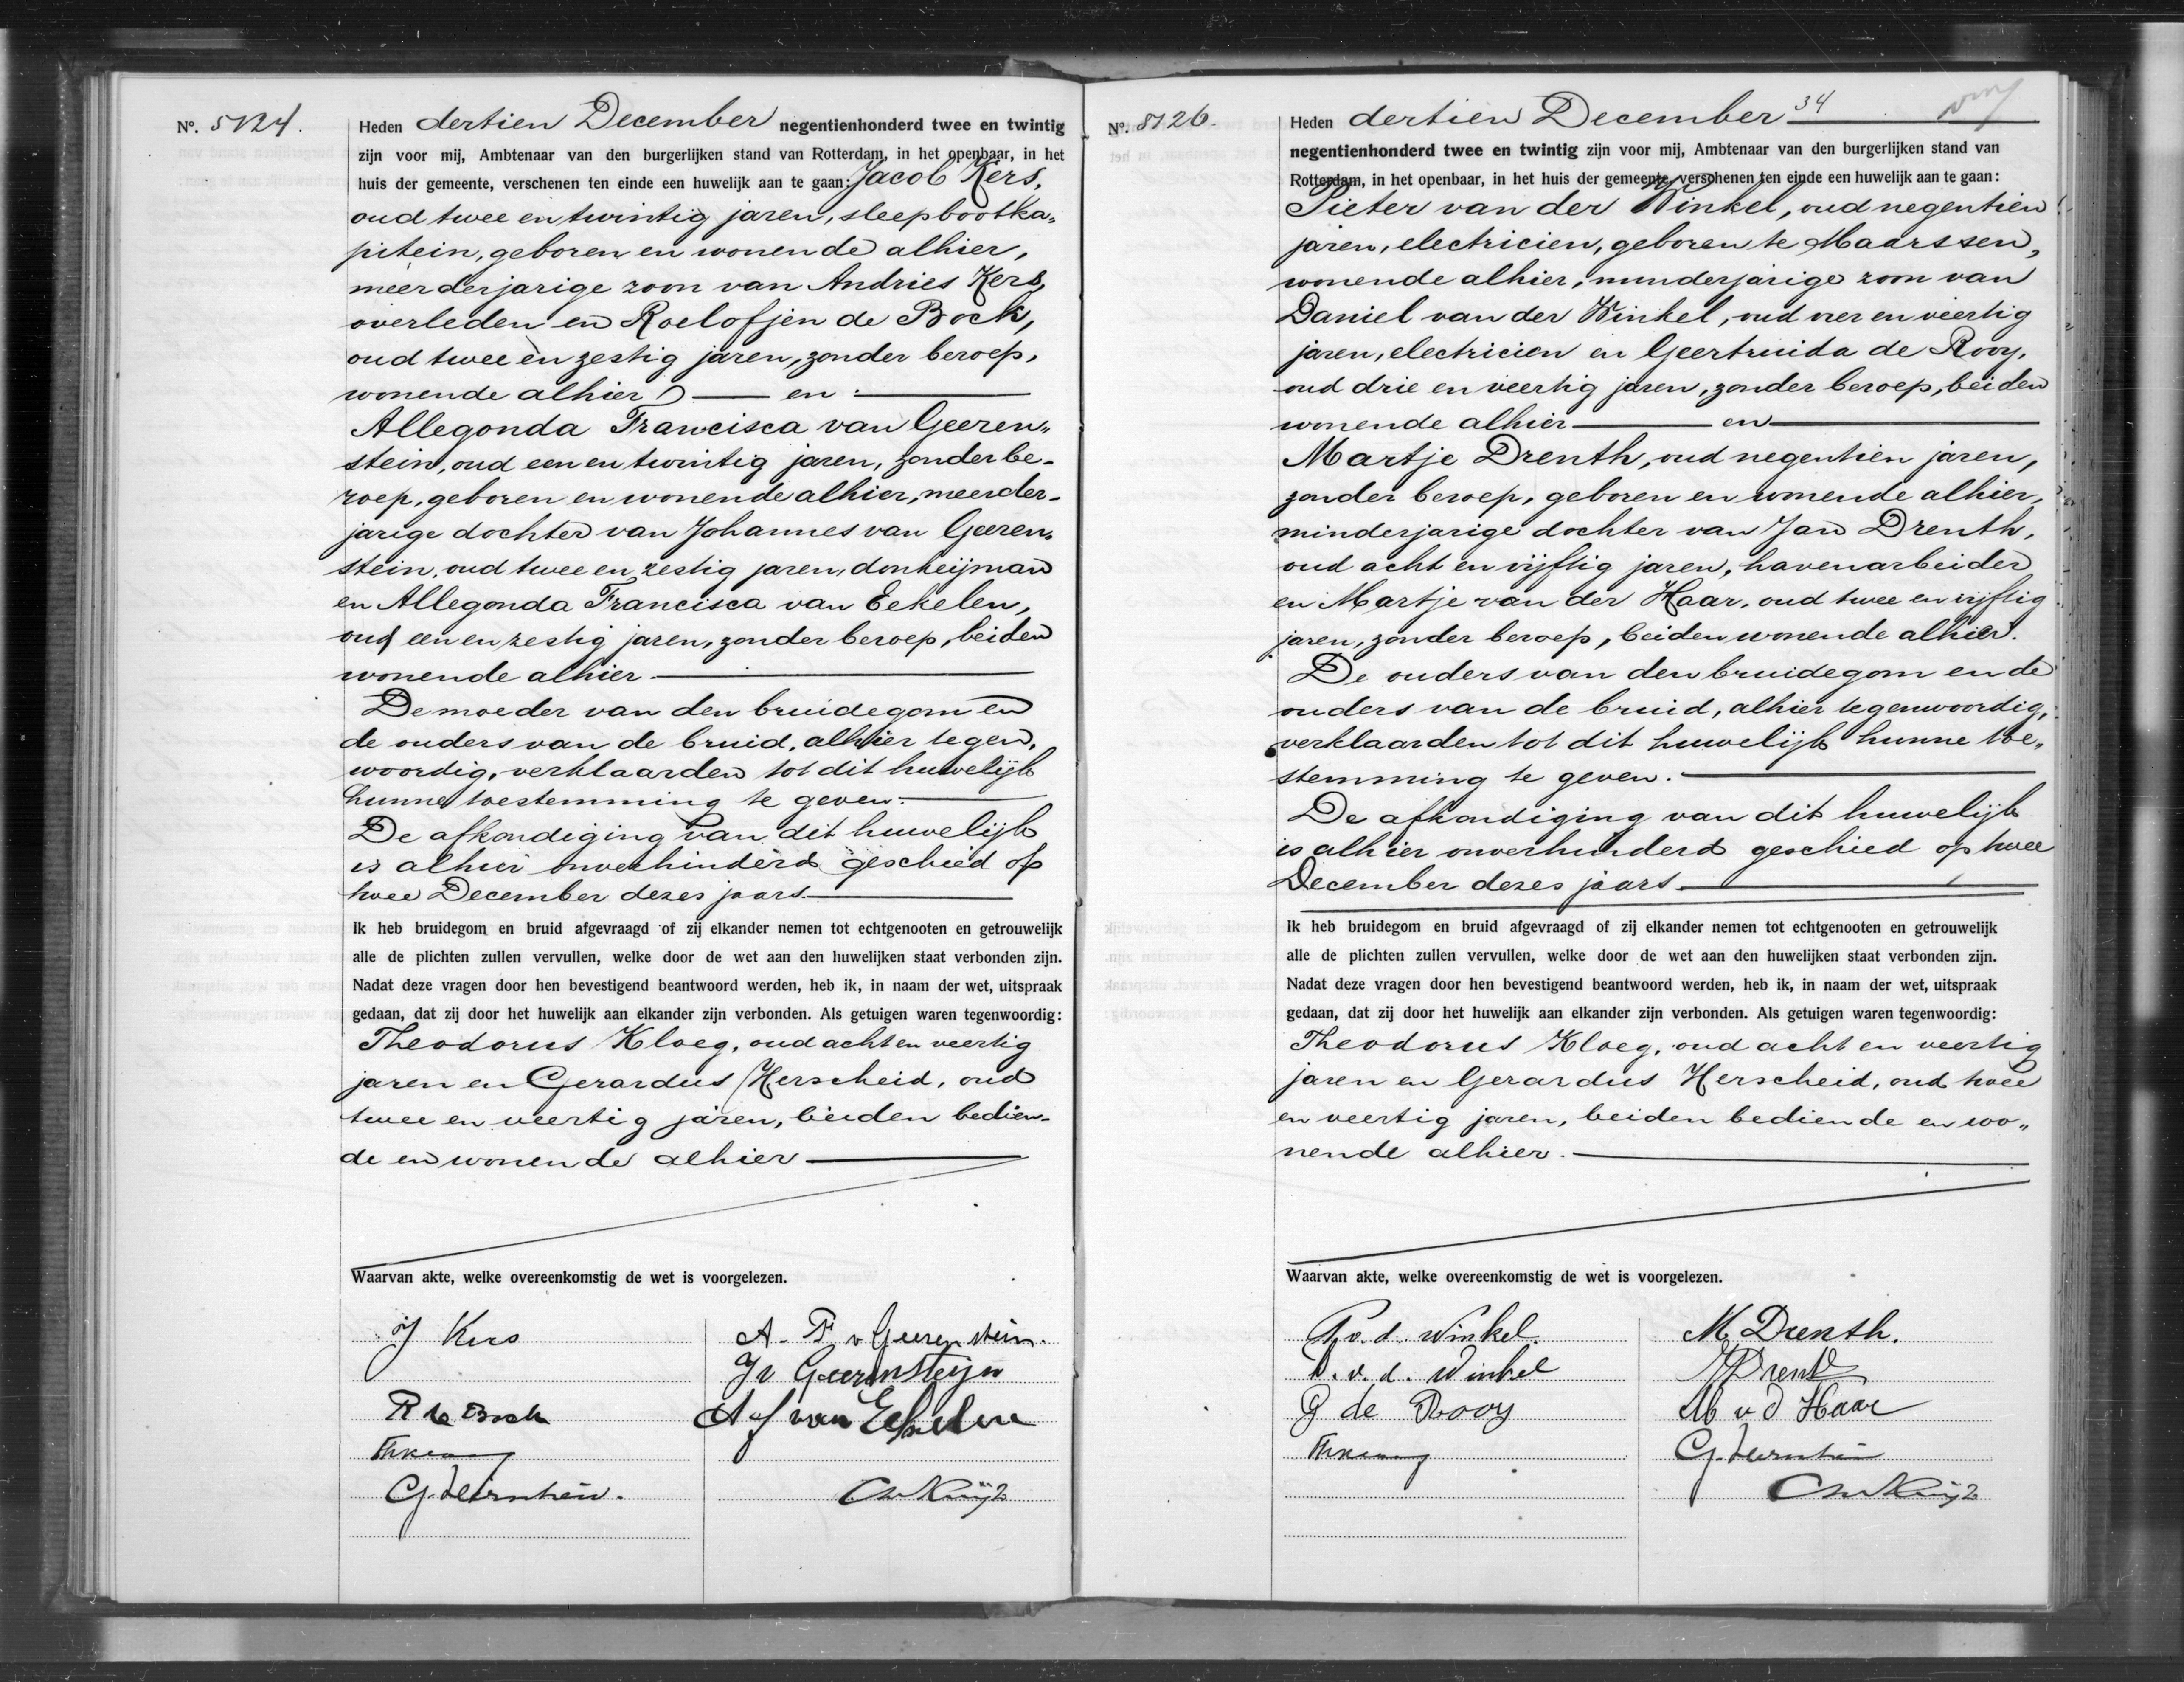 No. 5124.
Heden dertien December negentienhonderd twee en twintig
zijn voor mij, Ambtenaar van den burgerlijken stand van Rotterdam, in het openbaar, in het
huis der gemeente, verschenen ten einde een huwelijk aan te gaan: Jacob Kers,
oud twee en twintig jaren, sleepbootka„
pitein, geboren en wonende alhier,
meerderjarige zoon van Andries Kers,
overleden en Roelofjen de Bock,
oud twee en zestig jaren, zonder beroep,
wonende alhier — en —
Allegonda Francisca van Geeren„
stein, oud een en twintig jaren, zonder be-
roep, geboren en wonende alhier, meerder-
jarige dochter van Johannes van Geeren„
stein, oud twee en zestig jaren, donkeijman
en Allegonda Francisca van Eekelen,
oud een en zestig jaren, zonder beroep, beiden
wonende alhier —
De moeder van den bruidegom en
de ouders van de bruid, alhier tegen„
woordig, verklaarden tot dit huwelijk
hunne toestemming te geven. —
De afkondiging van dit huwelijk
is alhier onverhinderd geschied op
twee December dezes jaars. —
Ik heb bruidegom en bruid afgevraagd of zij elkander nemen tot echtgenooten en getrouwelijk
alle de plichten zullen vervullen, welke door de wet aan den huwelijken staat verbonden zijn.
Nadat deze vragen door hen bevestigend beantwoord werden, heb ik, in naam der wet, uitspraak
gedaan, dat zij door het huwelijk aan elkander zijn verbonden. Als getuigen waren tegenwoordig:
Theodorus Kloeg, oud acht en veertig
jaren en Gerardus Herscheid, oud
twee en veertig jaren, beiden bedien-
de en wonende alhier —
Waarvan akte, welke overeenkomstig de wet is voorgelezen.
J Kers
A. F v Geerenstein.
J v Geerensteijn
R de Bock
A f van Eekelen
No. 5126.
Heden dertien December 34
negentienhonderd twee en twintig zijn voor mij, Ambtenaar van den burgerlijken stand van
Rotterdam, in het openbaar, in het huis der gemeente, verschenen ten einde een huwelijk aan te gaan:
Pieter van der Winkel, oud negentien
jaren, electricien, geboren te Maarssen,
wonende alhier, minderjarige zoon van
Daniel van der Winkel, oud vier en veertig
jaren, electricien en Geertruida de Rooy,
oud drie en veertig jaren, zonder beroep, beiden
wonende alhier — en —
Martje Drenth, oud negentien jaren,
zonder beroep, geboren en wonende alhier,
minderjarige dochter van Jan Drenth,
oud acht en vijftig jaren, havenarbeider
en Martje van der Haar, oud twee en vijftig
jaren, zonder beroep, beiden wonende alhier.
De ouders van den bruidegom en de
ouders van de bruid, alhier tegenwoordig,
verklaarden tot dit huwelijk hunne toe„
stemming te geven. —
De afkondiging van dit huwelijk
is alhier onverhinderd geschied op twee
December dezes jaars. —
Ik heb bruidegom en bruid afgevraagd of zij elkander nemen tot echtgenooten en getrouwelijk
alle de plichten zullen vervullen, welke door de wet aan den huwelijken staat verbonden zijn.
Nadat deze vragen door hen bevestigend beantwoord werden, heb ik, in naam der wet, uitspraak
gedaan, dat zij door het huwelijk aan elkander zijn verbonden. Als getuigen waren tegenwoordig:
Theodorus Kloeg, oud acht en veertig
jaren en Gerardus Herscheid, oud twee
en veertig jaren, beiden bediende en wo„
nende alhier. —
Waarvan akte, welke overeenkomstig de wet is voorgelezen.
P v. d. Winkel.
M Drenth.
D. v. d. Winkel
J Drenth
G de Rooy
M v d Haar